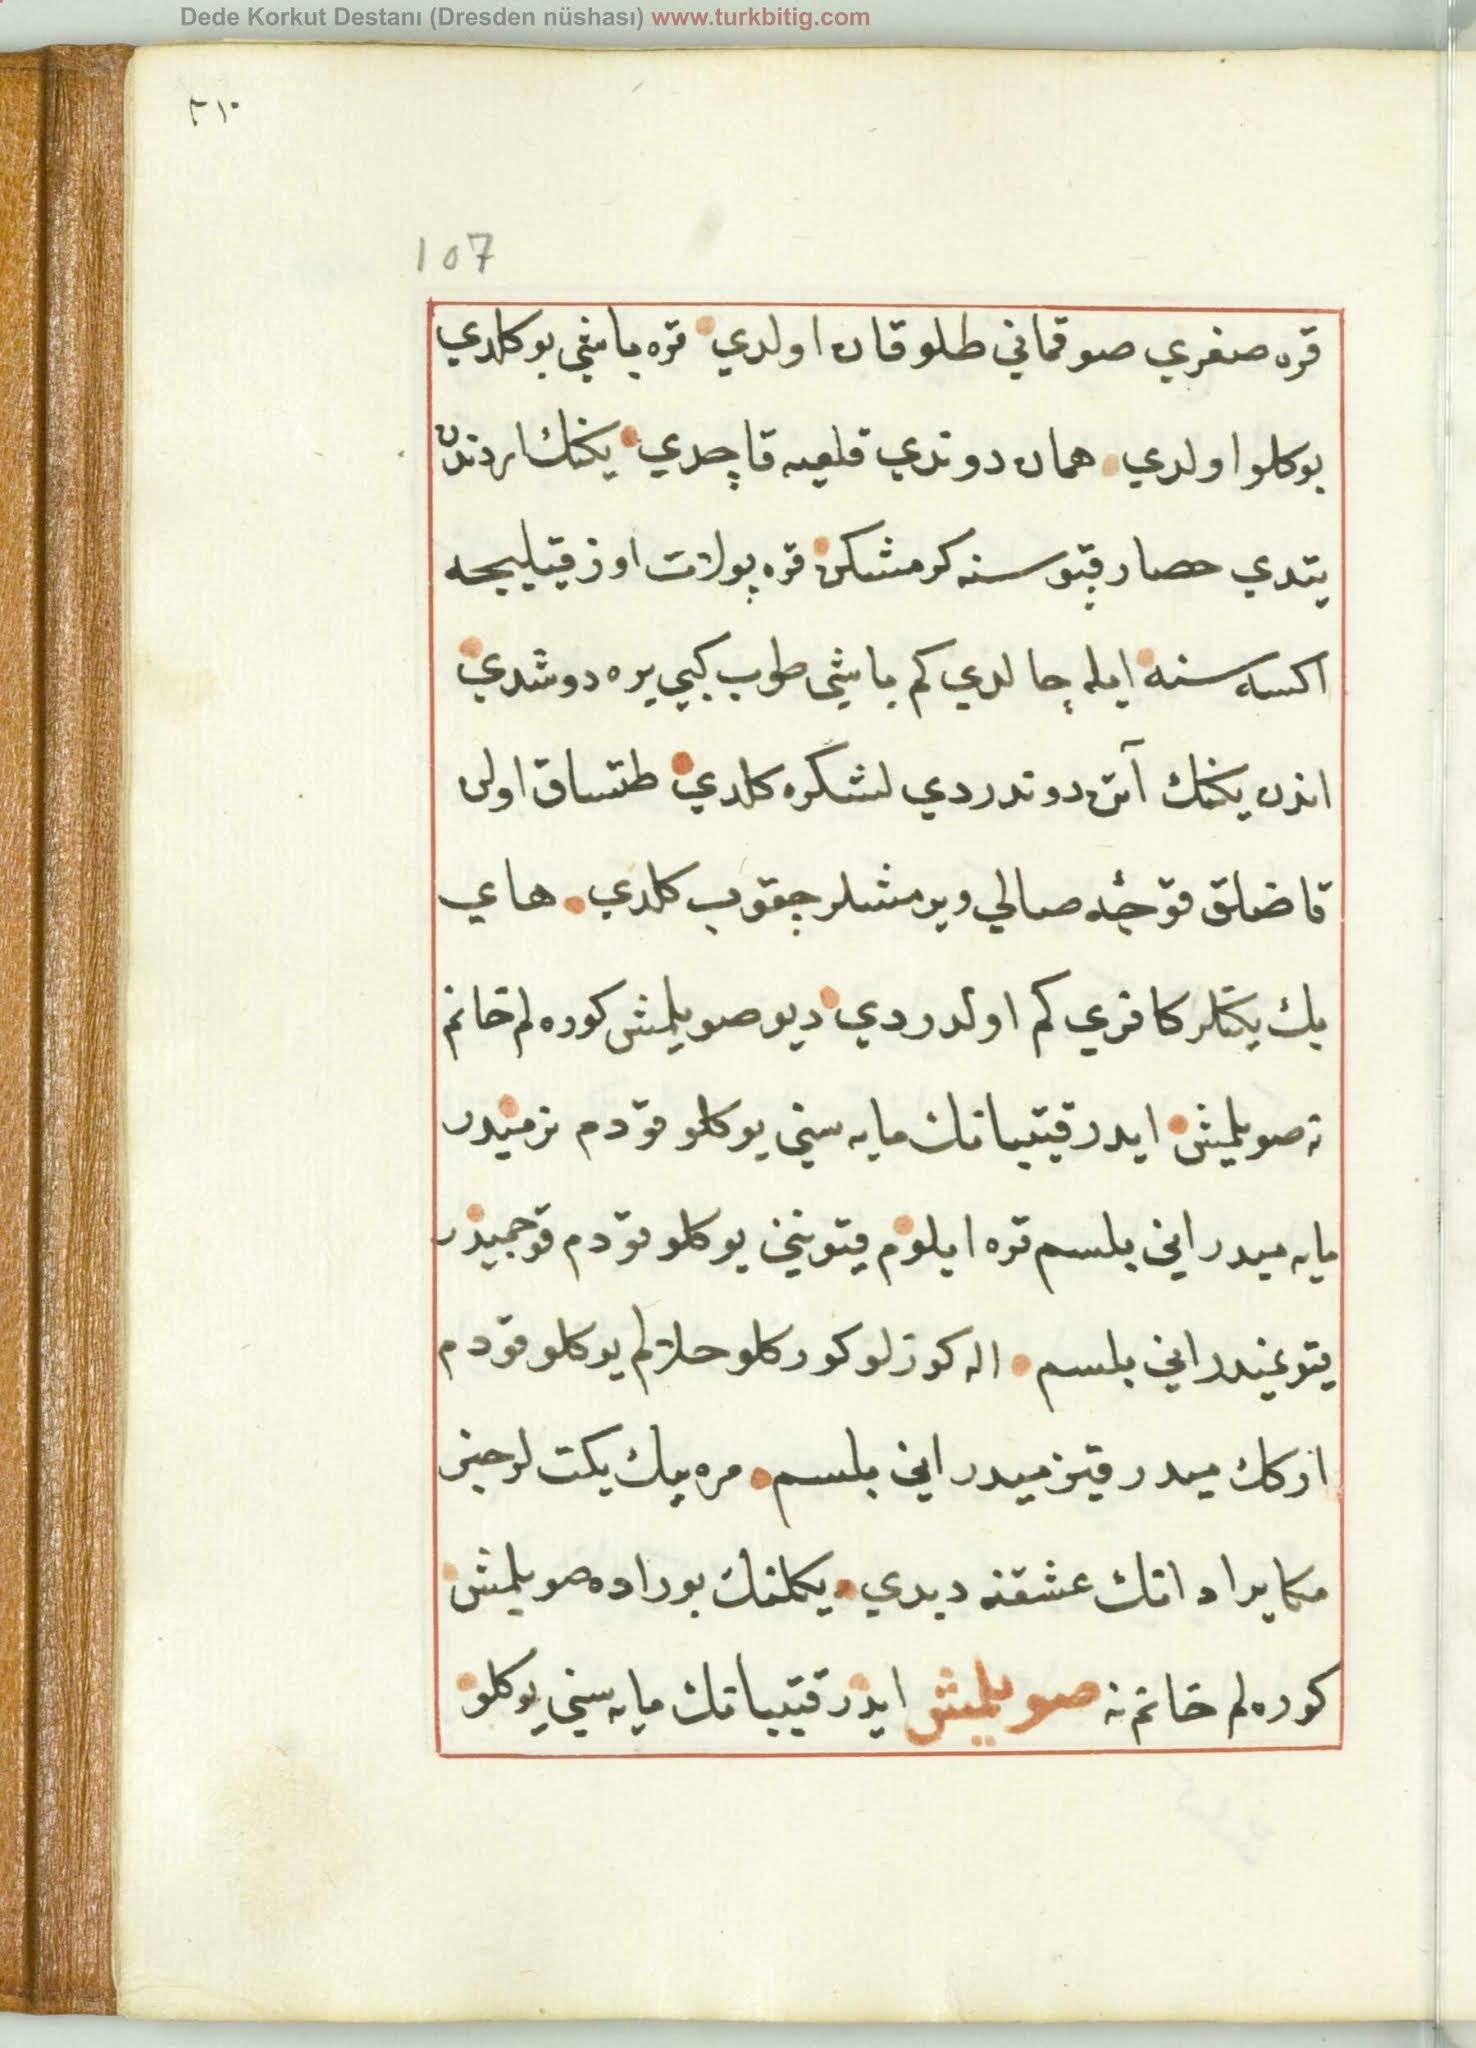 Dede Korkut Destanı (Dresden nüshası) www.turkbitig.com
٢١٠
107
قره صغري صوقماني طلو قان اولدي قره باشي بوكلدي
بوكلو اولدي همان دوندي قلعیه قاچدي یکنك اردندن
یتدي حصار قپوسنه کرمشکن قره پولات اوز قیلیجله
اکسه سنه ایله چالدي کم باشي طوب کبي یره دوشدي
اندن یکنك آتن دوندردي لشکره کلدي طتساق اولن
قاضلق قوجه صالي ویرمشلر چقوب کلدي هاي
بك یکتلر کافري کم اولدردي دیو صویلمش کوره لم خانم
نه صویلمش ایدر قیتبانك مایه سني یوکلو قودم نرمیدر
مایه میدر اني بلسم قره ایلوم قیوننی یوکلو قودم قوجمیدر
قیونمیدر اني بلسم اله کوزلو کورکلو حلالم یوکلو قودم
ارکك میدر قیز میدر اني بلسم مره بیك یکت لر جنز
مکا یرادانك عشقنه دیدي یکلنك بوراده صویلمش
کوره لم خانم نه صویلمش ایدر قیتبانك مایه سني یوکلو